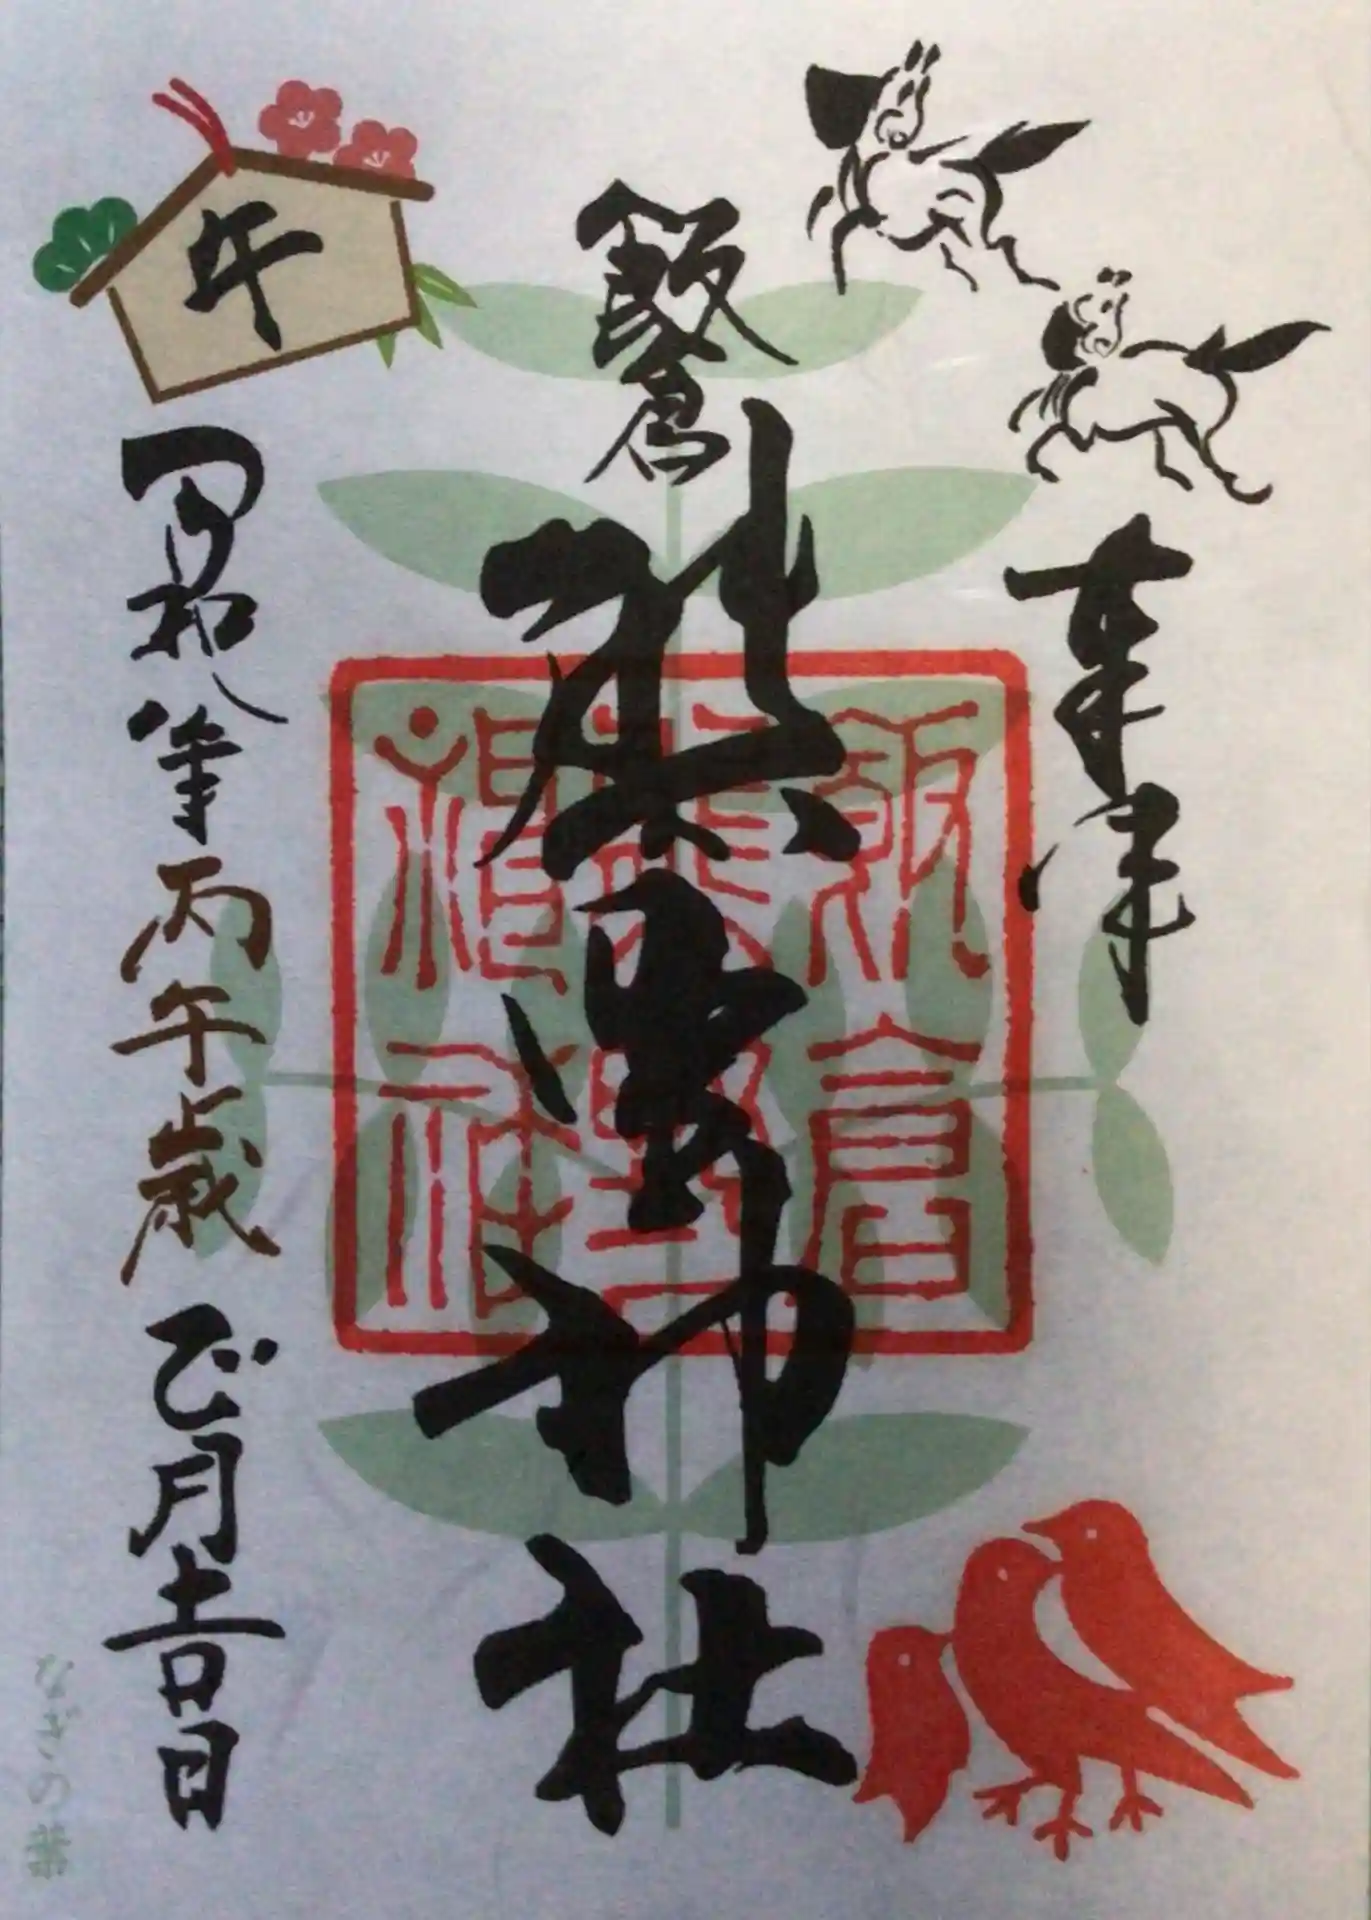 奉拝
飯倉
熊野神社
飯倉
熊野
神社
午
令和八年丙午歳 正月吉日
なぎの葉